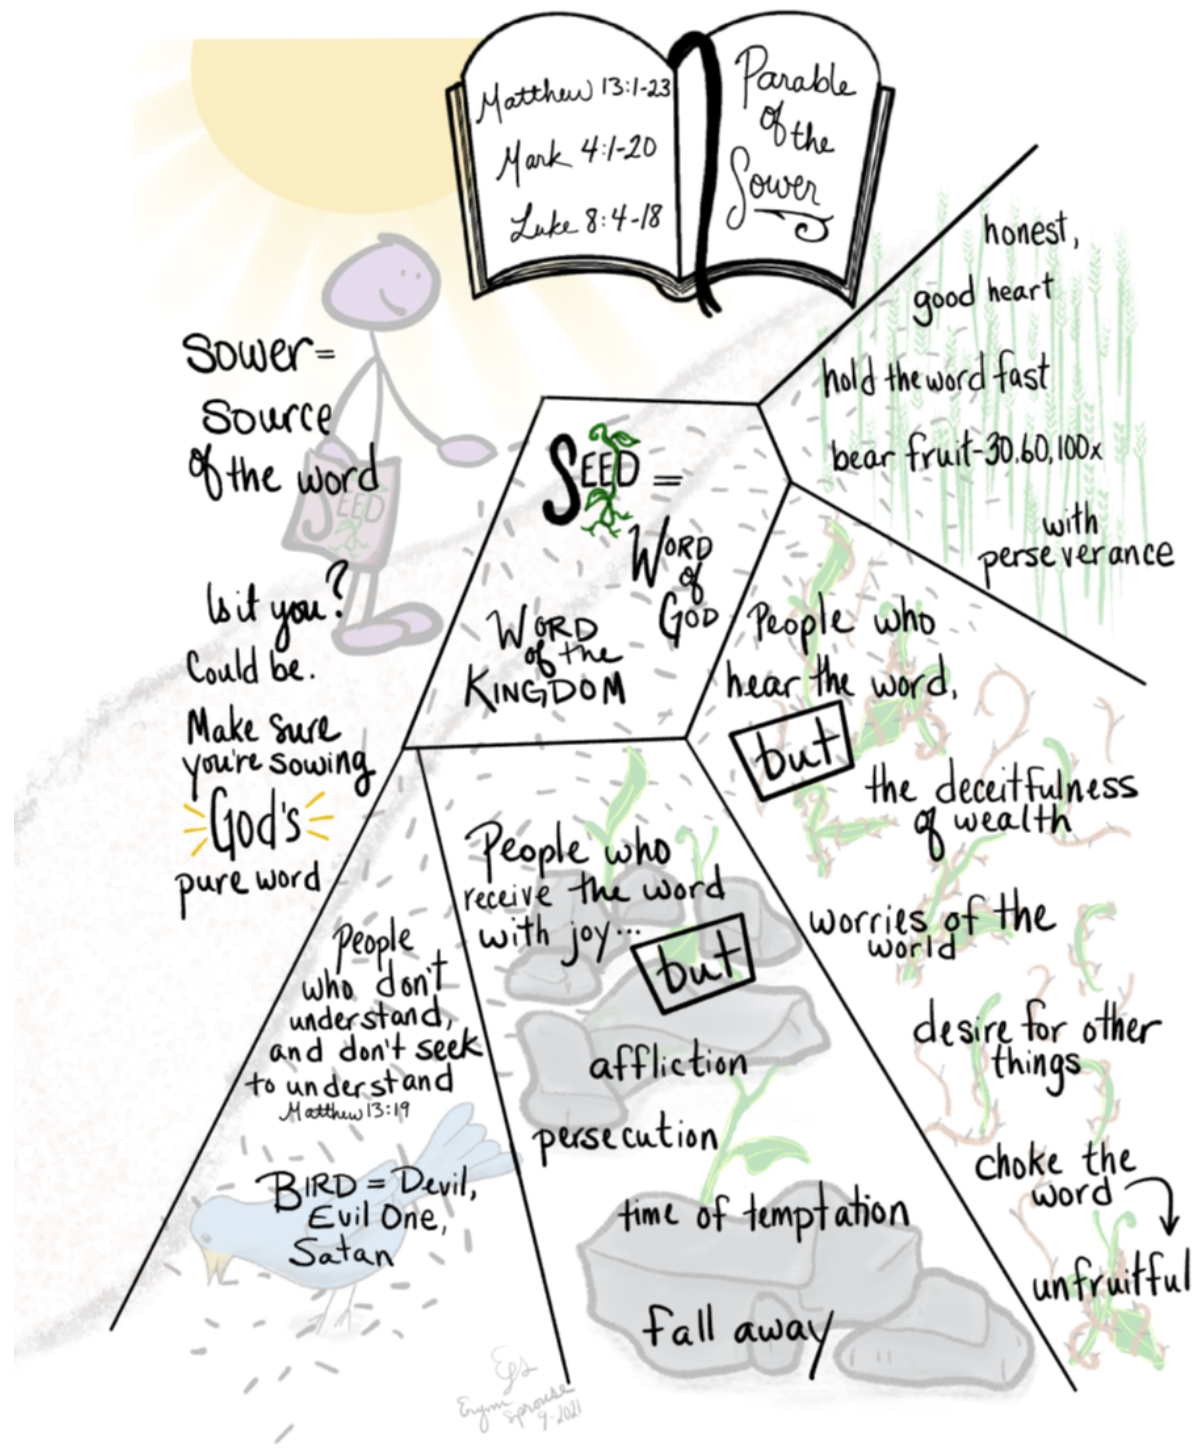 Matthew 13:1-23
Mark 4:1-20
Luke 8:4-18
Parable
of the
Sower
Sower=
Source
of the word
SEED
Is it you?
Could be.
Make sure
you're sowing
God's
pure word
SEED =
WORD
of
GOD
WORD
of the
KINGDOM
honest,
good heart
hold the word fast
bear fruit-30,60,100x
with
perseverance
People who
hear the word,
but
the deceitfulness
of wealth
worries of the
world
desire for other
things
choke the
word
unfruitful
People who
receive the word
with joy...
but
affliction
persecution
time of temptation
fall away
People
who don't
understand,
and don't seek
to understand
Matthew 13:19
BIRD = Devil,
Evil One,
Satan
Erynn
Sprouse
9-2021